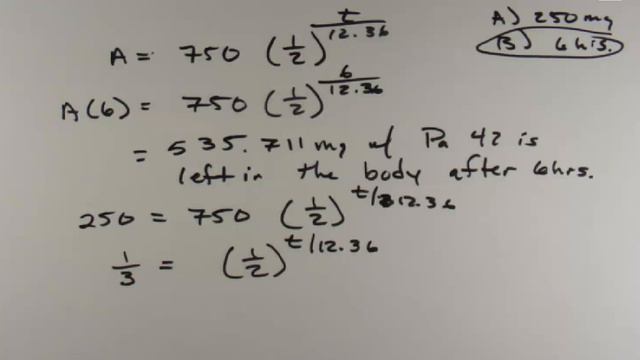 A = 750 (1/2)^(t/12.36)
A) 250 mg
B) 6 hrs.
A(6) = 750 (1/2)^(6/12.36)
= 535.711 mg of Pa 42 is
left in the body after 6 hrs.
250 = 750 (1/2)^(t/12.36)
1/3 = (1/2)^(t/12.36)